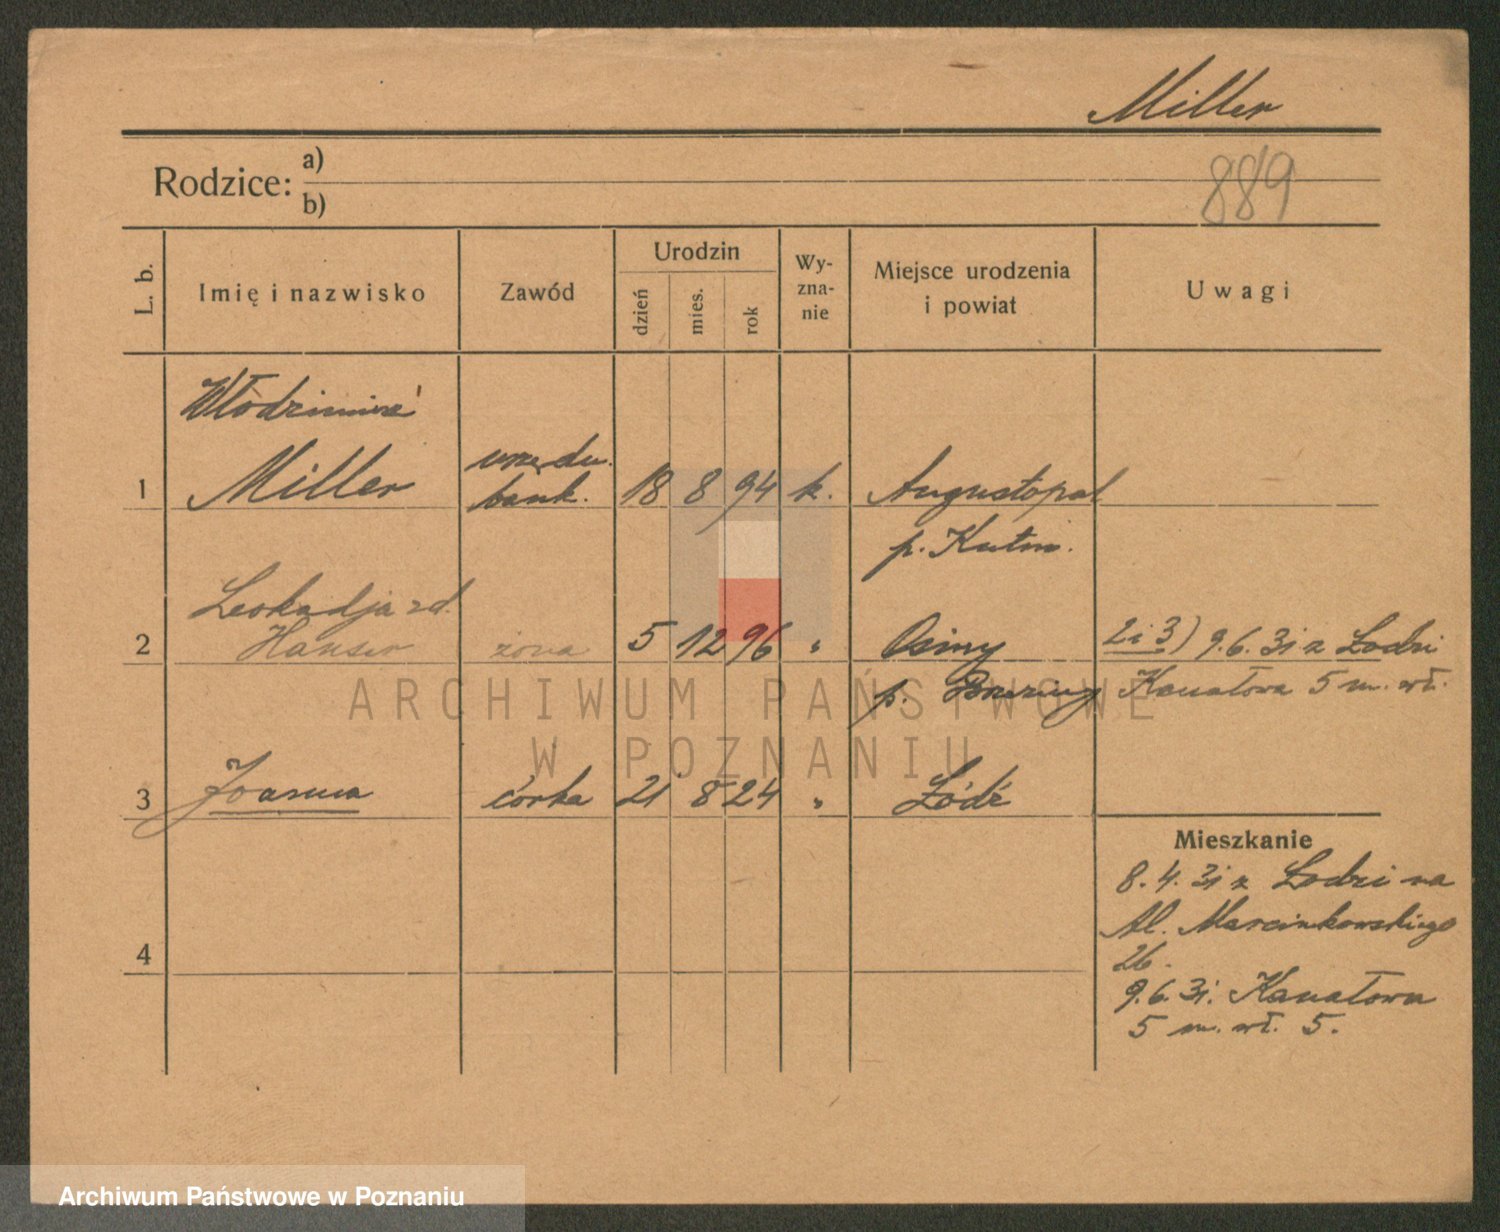 Miller
889
Rodzice: a)
b)
L. b.
Imię i nazwisko
Zawód
Urodzin
dzień
mies.
rok
Wy-
zna-
nie
Miejsce urodzenia
i powiat
Uwagi
Włodzimierz
1 Miller urzędn. bank. 18 8 94 k. Augustopol
p. Kutno.
Leokadja zd.
2 Hauser żona 5 12 96 „ Osiny 2 i 3) 9.6.31 z Łodzi
p. Brzeziny Kanałowa 5 m. wł.
3 Joanna córka 21 8 24 „ Łódź
Mieszkanie
8.4.31 z Łodzi na
Al. Marcinkowskiego
26.
4
9.6.31. Kanałowa
5 m. wł. 5.
ARCHIWUM PAŃSTWOWE
W POZNANIU
Archiwum Państwowe w Poznaniu